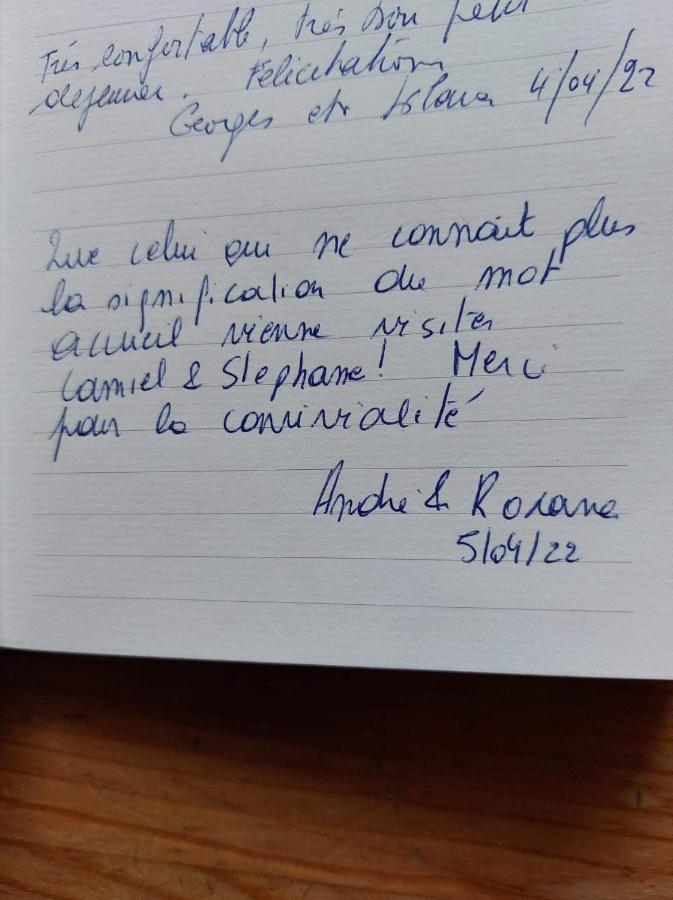 Très confortable, très bon petit
dejeuner. Felicitations
Georges et 4/04/22
Que celui qui ne connait plus
la signification du mot
accueil vienne visiter
Camiel & Stephane! Merci
pour la convivialité
Andre & Roxane
5/04/22